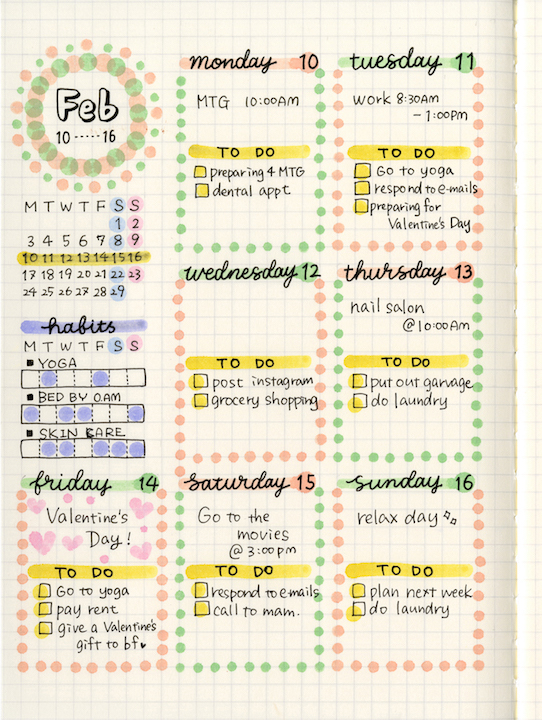 Feb
10 ----- 16
M T W T F S S
1 2
3 4 5 6 7 8 9
10 11 12 13 14 15 16
17 18 19 20 21 22 23
24 25 26 27 28 29
habits
M T W T F S S
YOGA
BED BY 0.AM
SKIN CARE
monday 10
MTG 10:00AM
TO DO
preparing 4 MTG
dental appt
tuesday 11
work 8:30AM
- 1:00PM
TO DO
Go to yoga
respond to e-mails
preparing for
Valentine's Day
wednesday 12
TO DO
post instagram
grocery shopping
thursday 13
nail salon
@ 10:00AM
TO DO
put out garvage
do laundry
friday 14
Valentine's
Day!
TO DO
Go to yoga
pay rent
give a Valentine's
gift to bf♥
saturday 15
Go to the
movies
@ 3:00pm
TO DO
respond to e-mails
call to mam.
sunday 16
relax day
TO DO
plan next week
do laundry